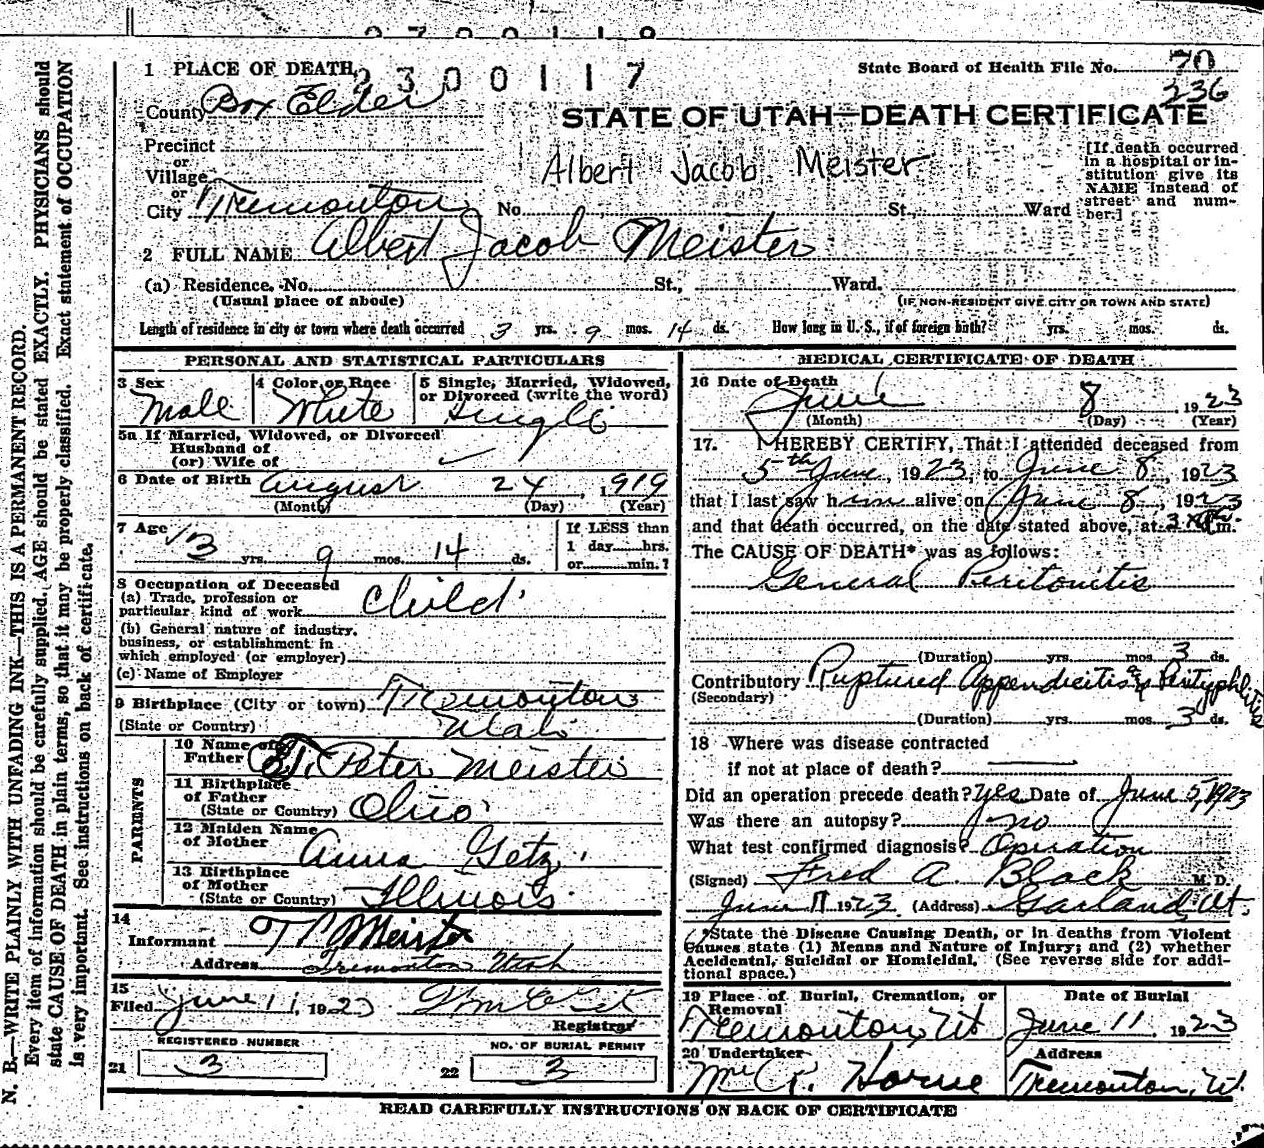 2300117
1 PLACE OF DEATH
State Board of Health File No. 70
236
County Box Elder
STATE OF UTAH—DEATH CERTIFICATE
Precinct
or
Village
or
City Tremonton No. St., Ward
Albert Jacob Meister
[If death occurred
in a hospital or in-
stitution give its
NAME instead of
street and num-
ber.]
2 FULL NAME Albert Jacob Meister
(a) Residence. No. St., Ward.
(Usual place of abode) (IF NON-RESIDENT GIVE CITY OR TOWN AND STATE)
Length of residence in city or town where death occurred 3 yrs. 9 mos. 14 ds. How long in U. S., if of foreign birth? yrs. mos. ds.
PERSONAL AND STATISTICAL PARTICULARS
3 Sex Male
4 Color or Race White
5 Single, Married, Widowed,
or Divorced (write the word)
Single
5a If Married, Widowed, or Divorced
Husband of
(or) Wife of
6 Date of Birth August 24, 1919
(Month) (Day) (Year)
7 Age 3 yrs. 9 mos. 14 ds.
If LESS than
1 day hrs.
or min.?
8 Occupation of Deceased
(a) Trade, profession or
particular kind of work Child
(b) General nature of industry,
business, or establishment in
which employed (or employer)
(c) Name of Employer
9 Birthplace (City or town) Tremonton
(State or Country) Utah
PARENTS
10 Name of
Father T. Peter Meister
11 Birthplace
of Father
(State or Country) Ohio
12 Maiden Name
of Mother Anna Getz
13 Birthplace
of Mother
(State or Country) Illinois
14
Informant T P Meister
Address Tremonton Utah
15
Filed June 11, 1923
Registrar
REGISTERED NUMBER
21 3
NO. OF BURIAL PERMIT
22 3
MEDICAL CERTIFICATE OF DEATH
16 Date of Death
June 8 1923
(Month) (Day) (Year)
17. I HEREBY CERTIFY, That I attended deceased from
5th June, 1923, to June 8, 1923
that I last saw him alive on June 8, 1923
and that death occurred, on the date stated above, at 3 m.
The CAUSE OF DEATH* was as follows:
General Peritonitis
(Duration) yrs. mos. 3 ds.
Contributory Ruptured Appendicitis & Perityphlitis
(Secondary)
(Duration) yrs. mos. 3 ds.
18 Where was disease contracted
if not at place of death?
Did an operation precede death? yes Date of June 5, 1923
Was there an autopsy? no
What test confirmed diagnosis? Operation
(Signed) Fred A. Black M. D.
June 11 1923 (Address) Garland, Ut.
(*State the Disease Causing Death, or in deaths from Violent
Causes state (1) Means and Nature of Injury; and (2) whether
Accidental, Suicidal or Homicidal. (See reverse side for addi-
tional space.)
19 Place of Burial, Cremation, or
Removal
Tremonton, Ut
Date of Burial
June 11 1923
20 Undertaker
Wm R. Horne
Address
Tremonton, Ut.
READ CAREFULLY INSTRUCTIONS ON BACK OF CERTIFICATE
N. B.—WRITE PLAINLY WITH UNFADING INK—THIS IS A PERMANENT RECORD.
Every item of information should be carefully supplied. AGE should be stated EXACTLY. PHYSICIANS should
state CAUSE OF DEATH in plain terms, so that it may be properly classified. Exact statement of OCCUPATION
is very important. See instructions on back of certificate.